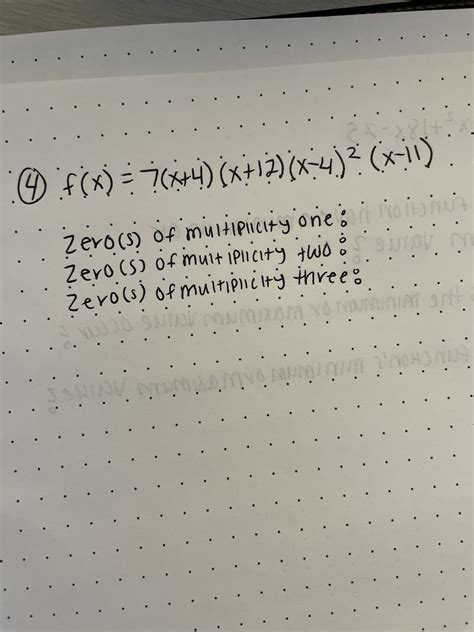 ④ f(x) = 7(x+4)(x+12)(x-4)² (x-11)
Zero(s) of multiplicity one:
Zero(s) of multiplicity two:
Zero(s) of multiplicity three: